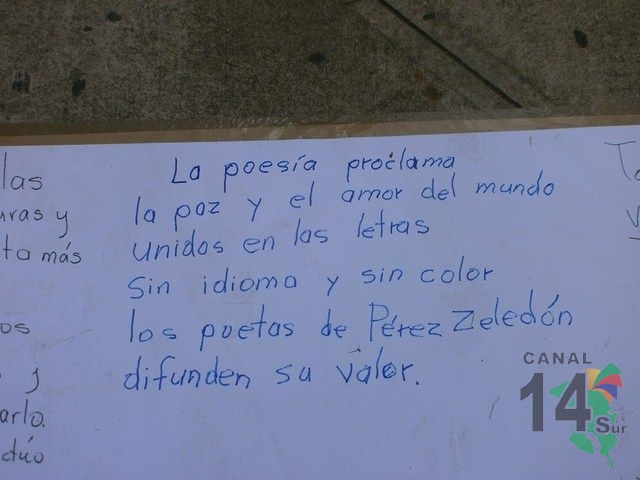 las
uras y
ta más
os
y
arlo.
dúo
La poesía proclama
la paz y el amor del mundo
unidos en las letras
sin idioma y sin color
los poetas de Pérez Zeledón
difunden su valor.
CANAL
14
Sur